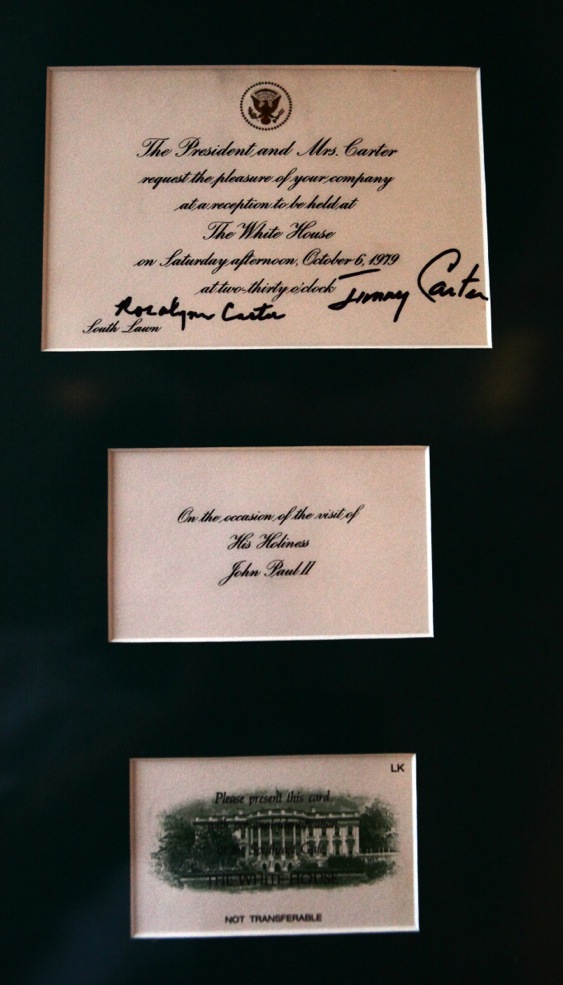 The President and Mrs. Carter
request the pleasure of your company
at a reception to be held at
The White House
on Saturday afternoon, October 6, 1979
at two-thirty o'clock
Jimmy Carter
Rosalynn Carter
South Lawn
On the occasion of the visit of
His Holiness
John Paul II
LK
Please present this card
THE WHITE HOUSE
NOT TRANSFERABLE